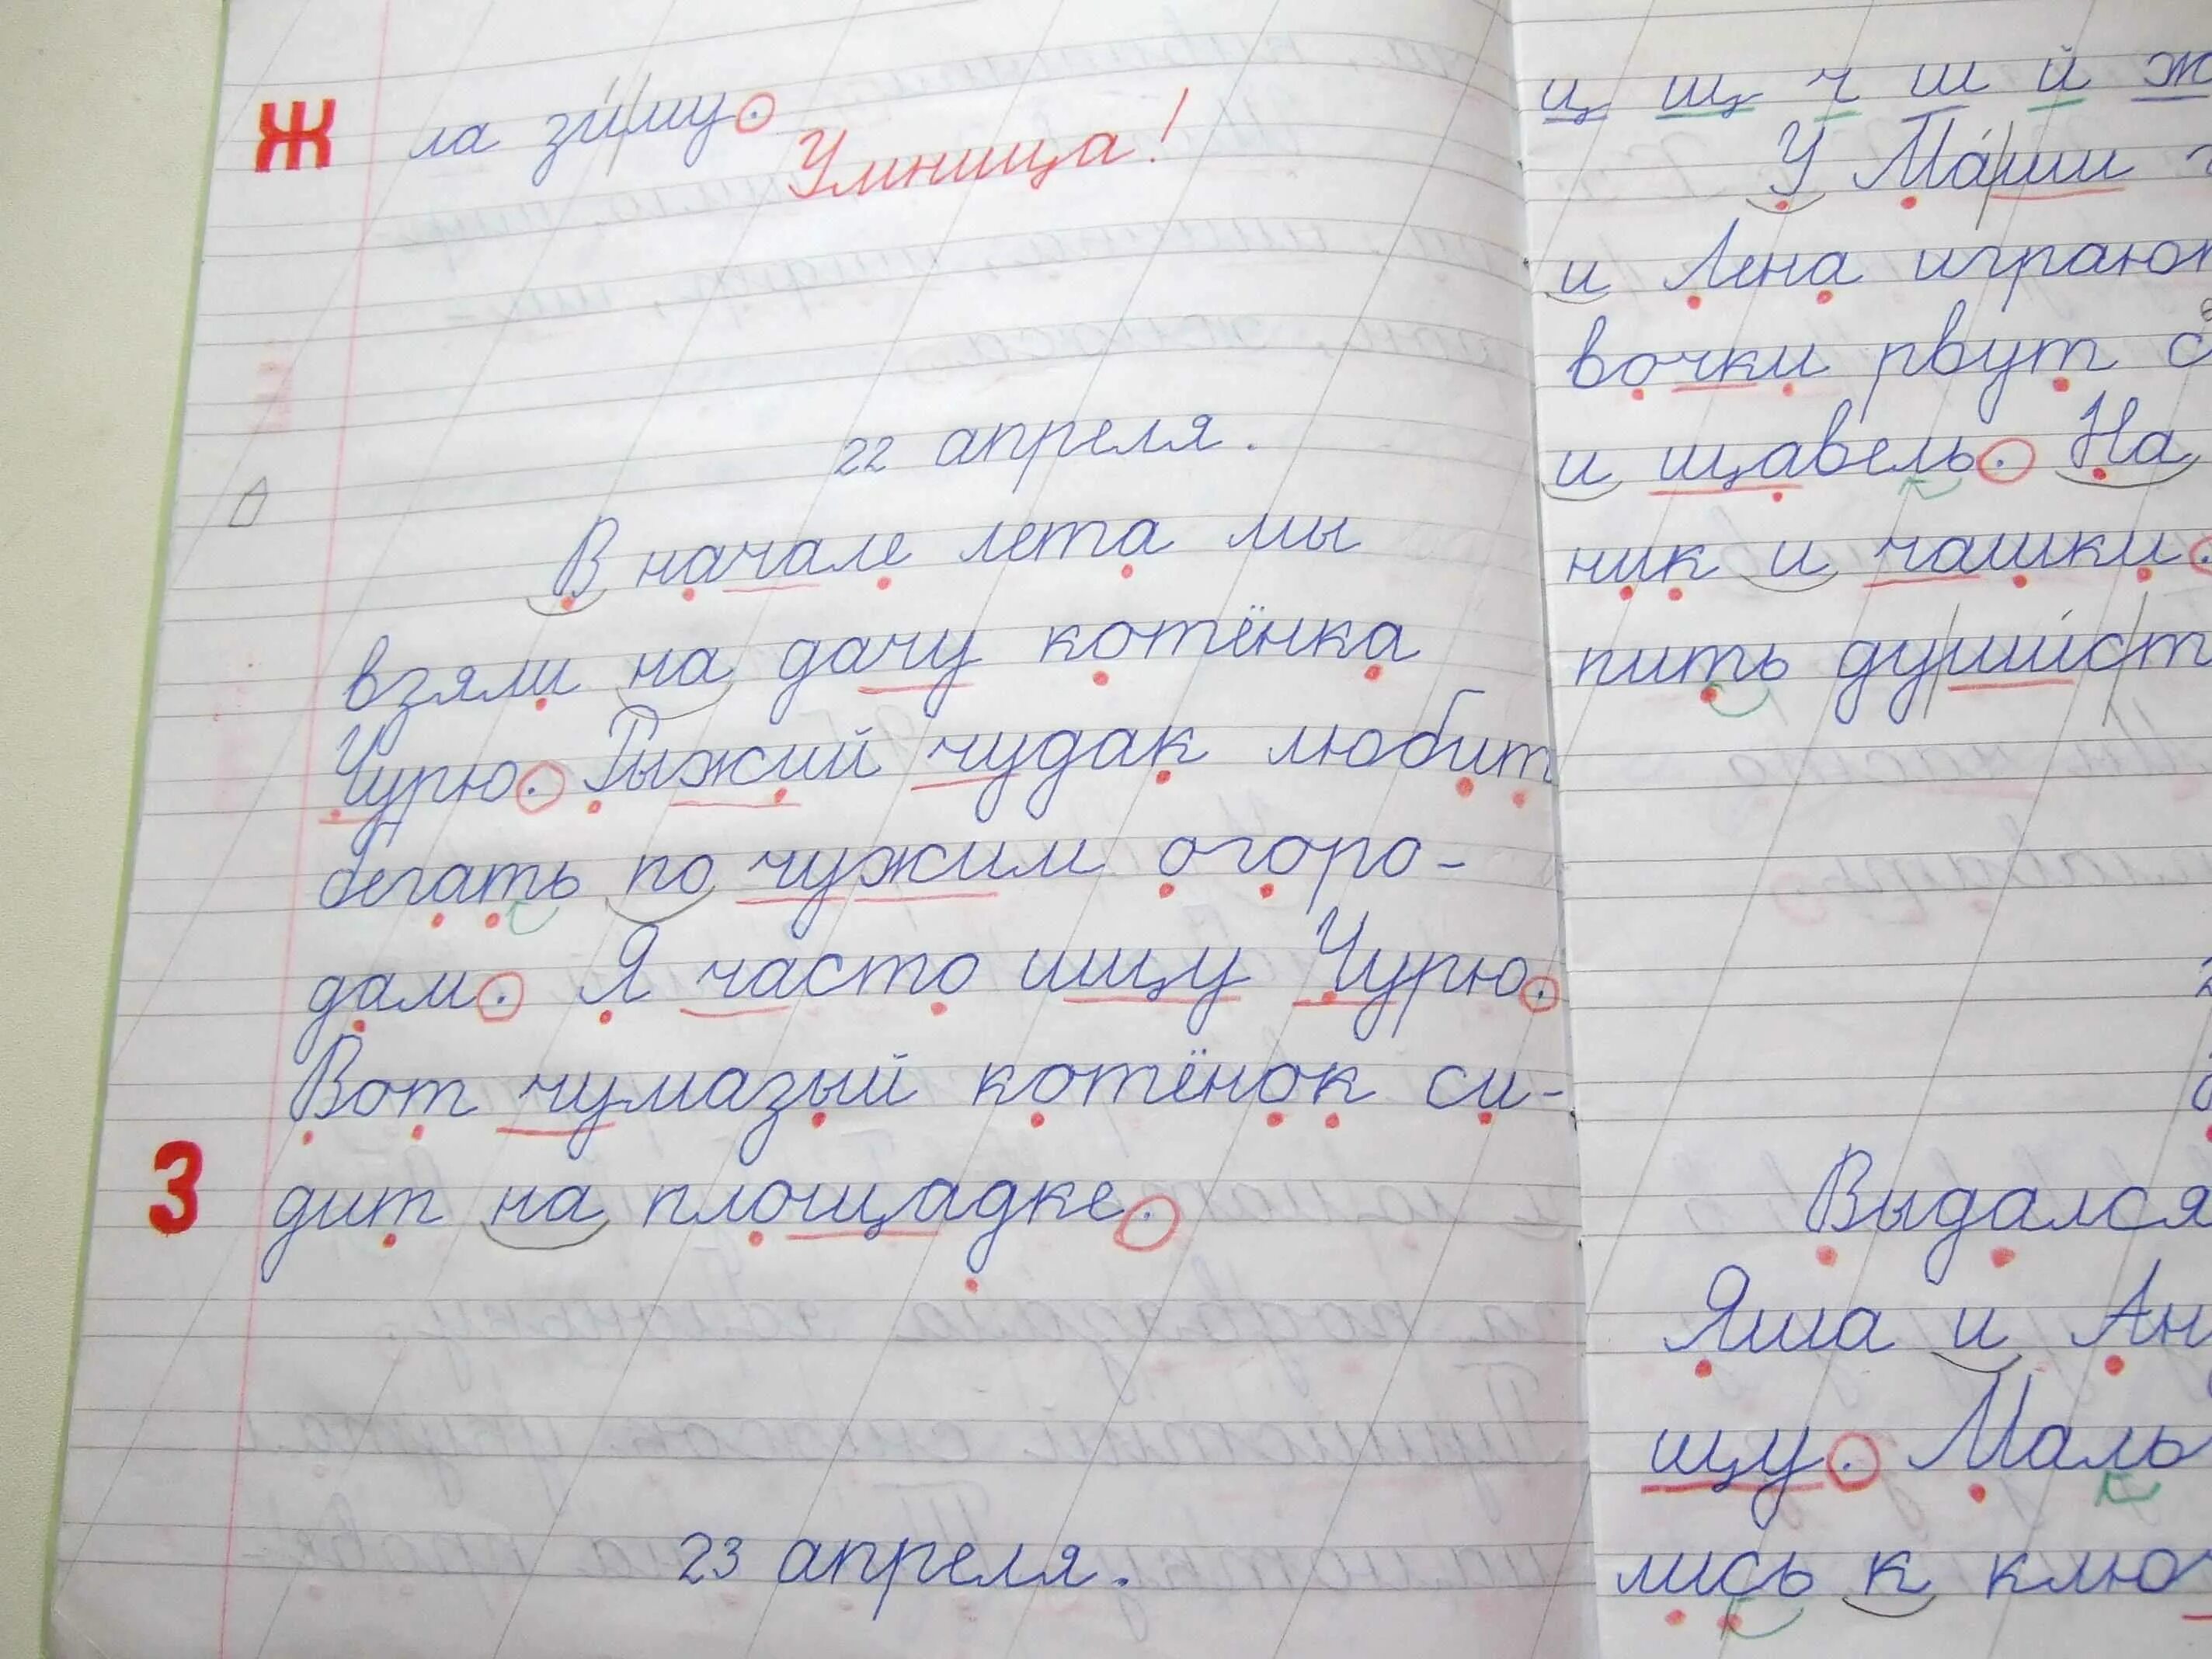 Ж
ла зиму.
Умница!
22 апреля.
В начале лета мы
взяли на дачу котёнка
Чурю. Рыжий чудак любит
бегать по чужим огоро-
дам. Я часто ищу Чурю.
Вот чумазый котёнок си-
З
дит на площадке.
23 апреля.
ц щ ч ш й ж
У Маши
и Лена играют
вочки рвут
и щавель. На
ник и чашки.
пить душист
Выдался
Яша и Ан
щу. Маль
лись к клю